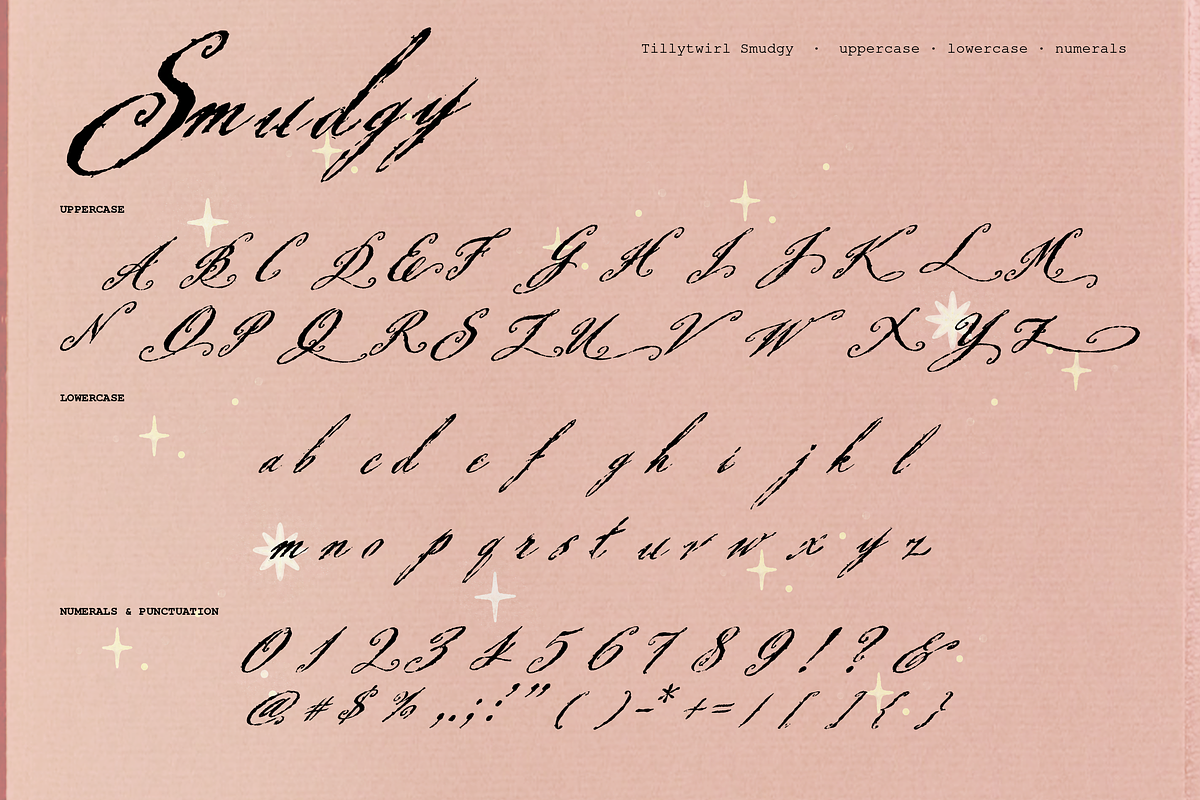 Smudgy
Tillytwirl Smudgy · uppercase · lowercase · numerals
UPPERCASE
A B C D E F G H I J K L M
N O P Q R S T U V W X Y Z
LOWERCASE
a b c d e f g h i j k l
m n o p q r s t u v w x y z
NUMERALS & PUNCTUATION
0 1 2 3 4 5 6 7 8 9 ! ? &
@ # $ % , . ; : ' " ( ) - * + = / [ ] { }